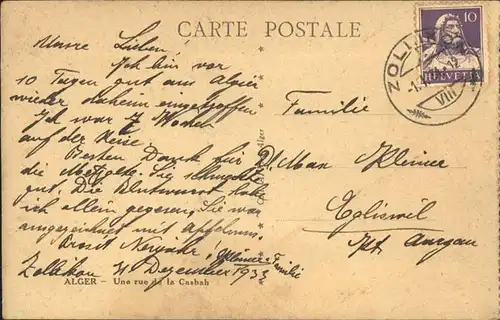 CARTE POSTALE
Unsre Lieben!
Ich bin vor
10 Tagen gut aus Algier
wieder daheim eingetroffen
Ich war 7 Wochen
auf der Reise
Besten Dank für
die Metzgete. Sie schmeckte
gut. Die Blutwurst habe
ich allein gegessen. Sie war
ausgezeichnet mit Apfelmus.
Prosit Neujahr!
Zollikon 31 Dezember 1933
Familie
ALGER - Une rue de la Casbah
Familie
Max Kleiner
Egliswil
Kt. Aargau
10
HELVETIA
ZOLLIKON
VIII
Alger